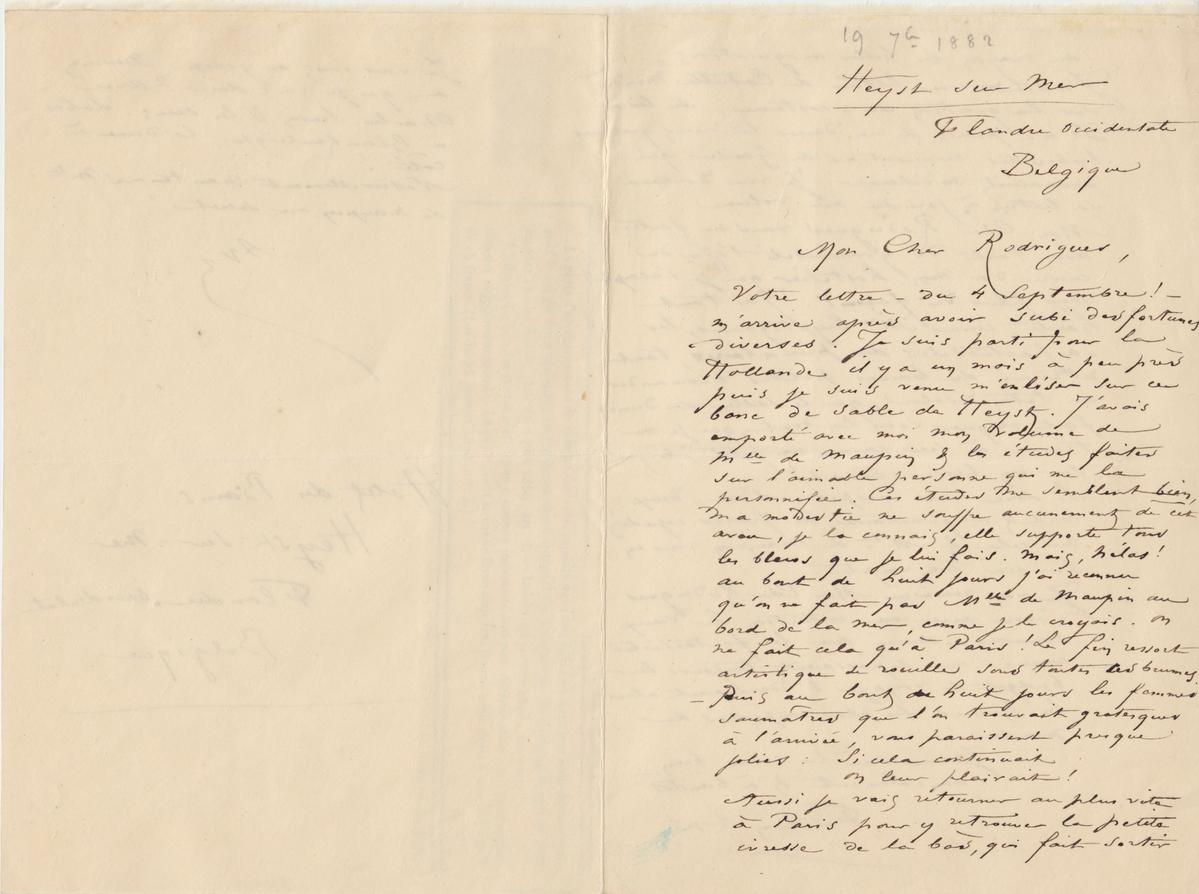 19 7bre 1882
Heyst sur Mer
Flandre Occidentale
Belgique
Mon Cher Rodrigues,
Votre lettre - du 4 Septembre ! -
m'arrive après avoir subi des fortunes
diverses. Je suis parti pour la
Hollande il y a un mois à peu près
puis je suis venu m'enliser sur ce
banc de sable de Heyst. J'avais
emporté avec moi mon volume de
Mlle de Maupin & les études faites
sur l'aimable personne qui me la
personnifie. Ces études me semblent bien,
ma modestie ne souffre aucunement de cet
aveu, je la connais, elle supporte tous
les bleus que je lui fais. Mais, hélas !
au bout de huit jours j'ai reconnu
qu'on ne fait pas Mlle de Maupin au
bord de la mer, comme je le croyais. On
ne fait cela qu'à Paris ! Le fin ressort
artistique se rouille sous toutes les brumes.
- Puis au bout de huit jours les femmes
saumâtres que l'on trouvait grotesques
à l'arrivée, vous paraissent presque
jolies : Si cela continuait
on leur plairait !
Aussi je vais retourner au plus vite
à Paris pour y retrouver la petite
ivresse de la bas, qui fait sortir